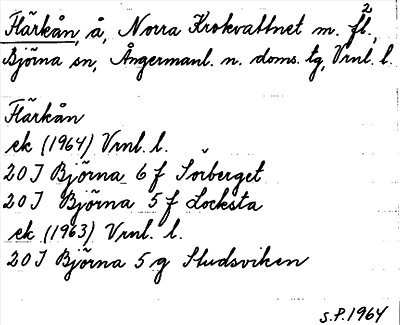 Flärkån, å, Norra Krokvattnet m. fl.,2
Björna sn, Ångermanl. n. doms. tg, Vrnl. l.
Flärkån
ek (1964) Vrnl. l.
20 I Björna 6 f Sörberget
20 I Björna 5 f Locksta
ek (1963) Vrnl. l.
20 I Björna 5 g Studsviken
S.P. 1964